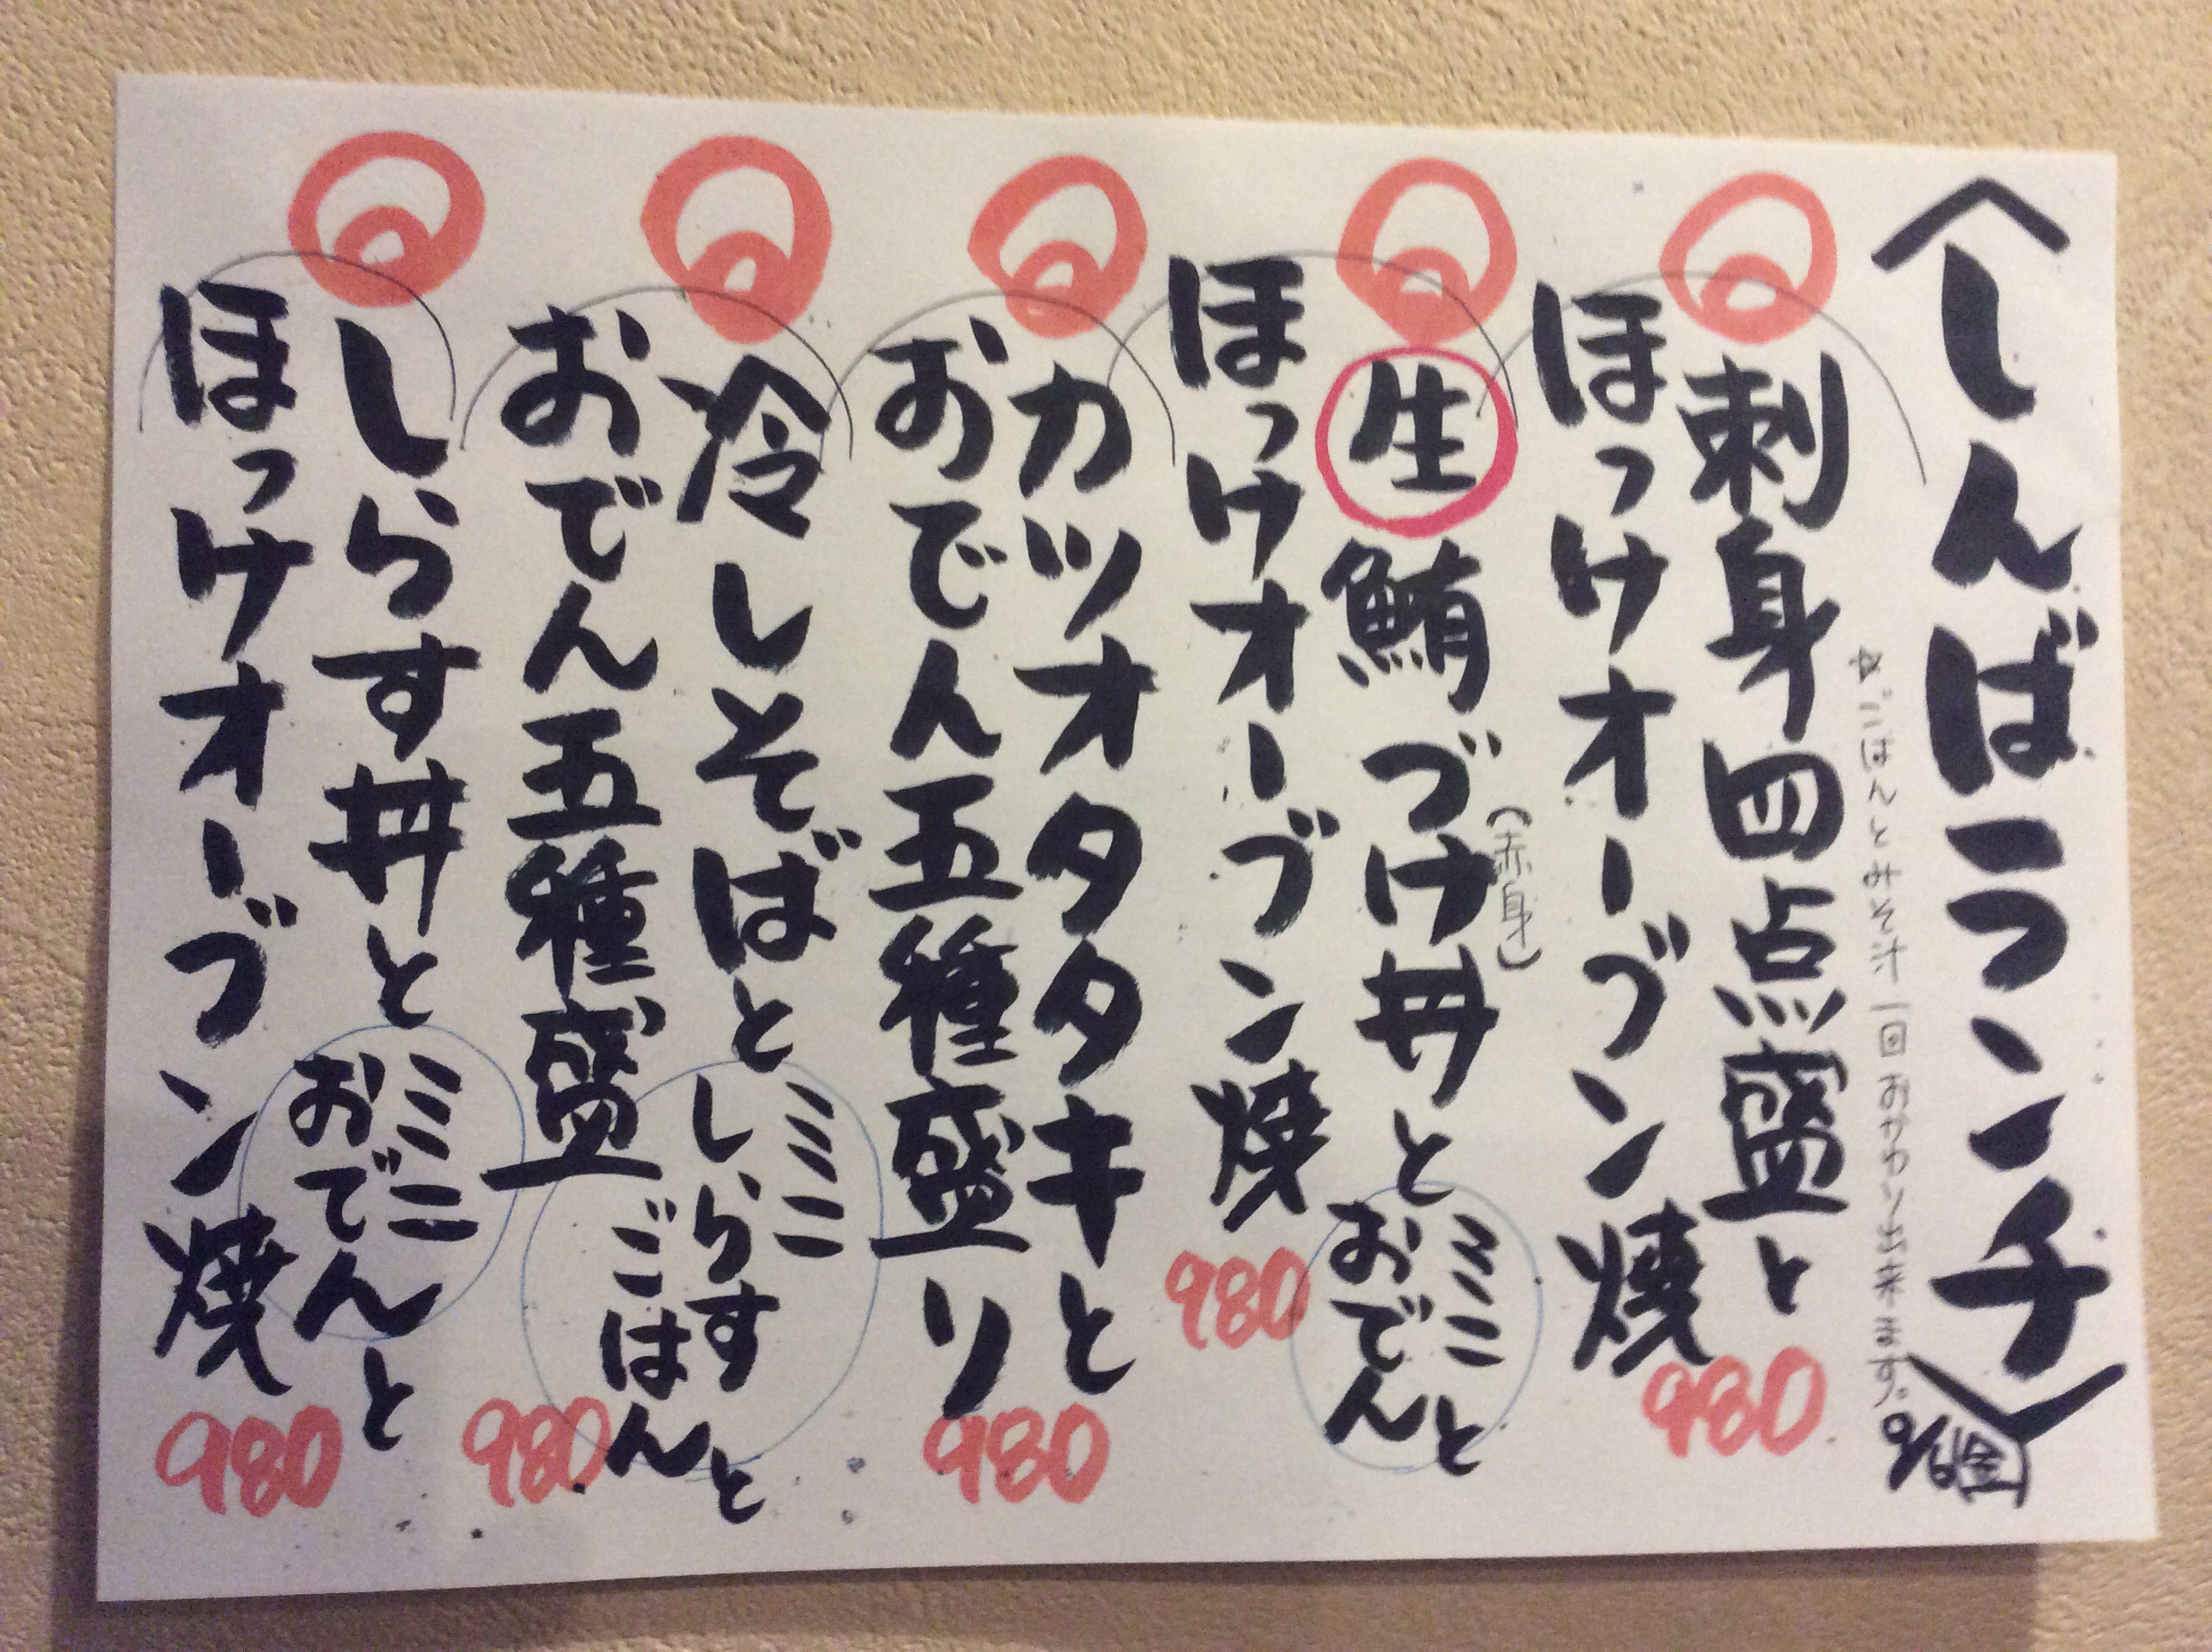 〈しんばランチ〉
9/6金
※ごはんとみそ汁一回おかわり出来ます。
刺身四点盛と
ほっけオーブン焼
980
生鮪づけ丼とミニおでんと
(赤身)
ほっけオーブン焼
980
カツオタタキと
おでん五種盛り
980
冷しそばとミニしらすごはんと
おでん五種盛
980
しらす丼とミニおでんと
ほっけオーブン焼
980